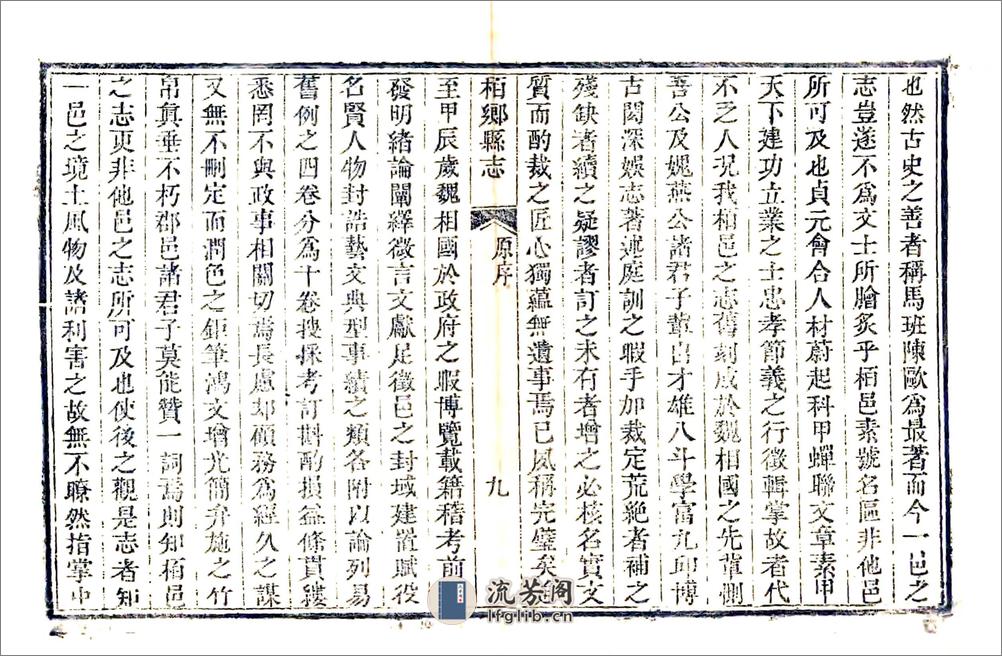 也然古史之善者稱馬班陳歐為最著而今一邑之
志豈遂不為文士所膾炙乎栢邑素號名區非他邑
所可及也貞元會合人材蔚起科甲蟬聯文章素甲
天下建功立業之士忠孝節義之行徵輯掌故者代
不乏人況我栢邑之志舊刻成於魏相國之先輩
善公及媿燕公諸君子輩出才雄八斗學富九邱博
古閎深娛志著述庭訓之暇手加裁定荒絶者補之
殘缺者續之疑謬者訂之未有者增之必核名實文
質而酌裁之匠心獨蘊無遺事焉已夙稱完璧矣
栢鄉縣志
原序
九
至甲辰歲魏相國於政府之暇博覽載籍稽考前
發明緒論闡繹徵言文獻足徵邑之封域建置賦役
名賢人物封誥藝文典型事績之類各附以論列易
舊例之四卷分為十卷搜採考訂斟酌損益條貫縷
悉罔不與政事相關切為長慮却顧務為經久之謀
又無不刪定而潤色之鉅筆鴻文增光簡弁施之竹
帛真垂不朽郡邑諸君子莫能贊一詞焉則知栢邑
之志更非他邑之志所可及也使後之觀是志者知
一邑之境土風物及諸利害之故無不瞭然指掌中
流芳阁
lfglib.cn